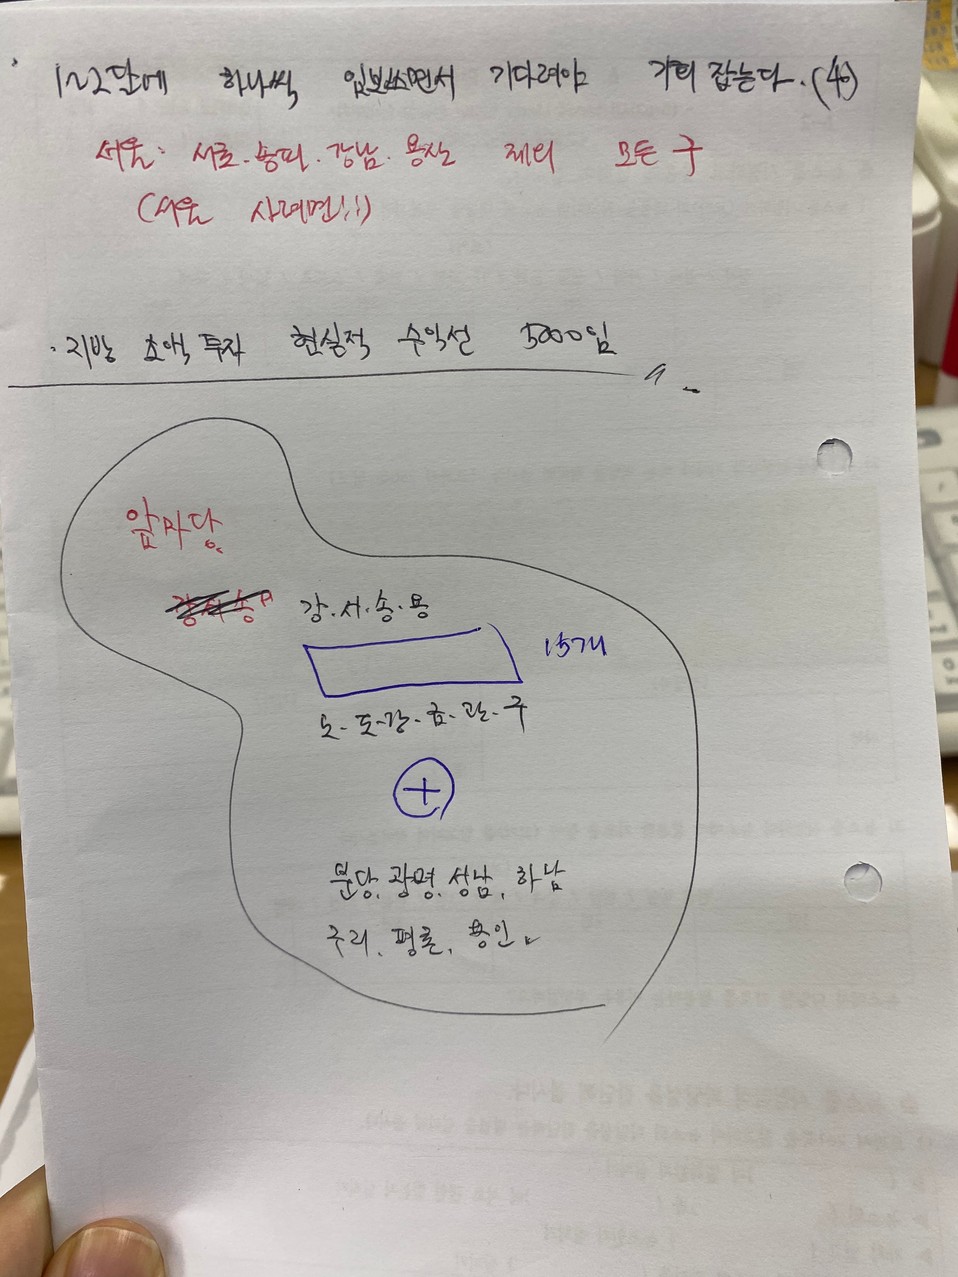 · 1~2달에 하나씩 임보쓰면서 기다려야 기회 잡는다. (40)
서울: 서초. 송파. 강남. 용산 제외 모든 구
(서울 사려면!!)
· 지방 소액 투자 현실적 수익선 5000임
앞마당
강.서.송.용
15개
노.도.강.금.관.구
+
분당, 광명, 성남, 하남
구리, 평촌, 용인